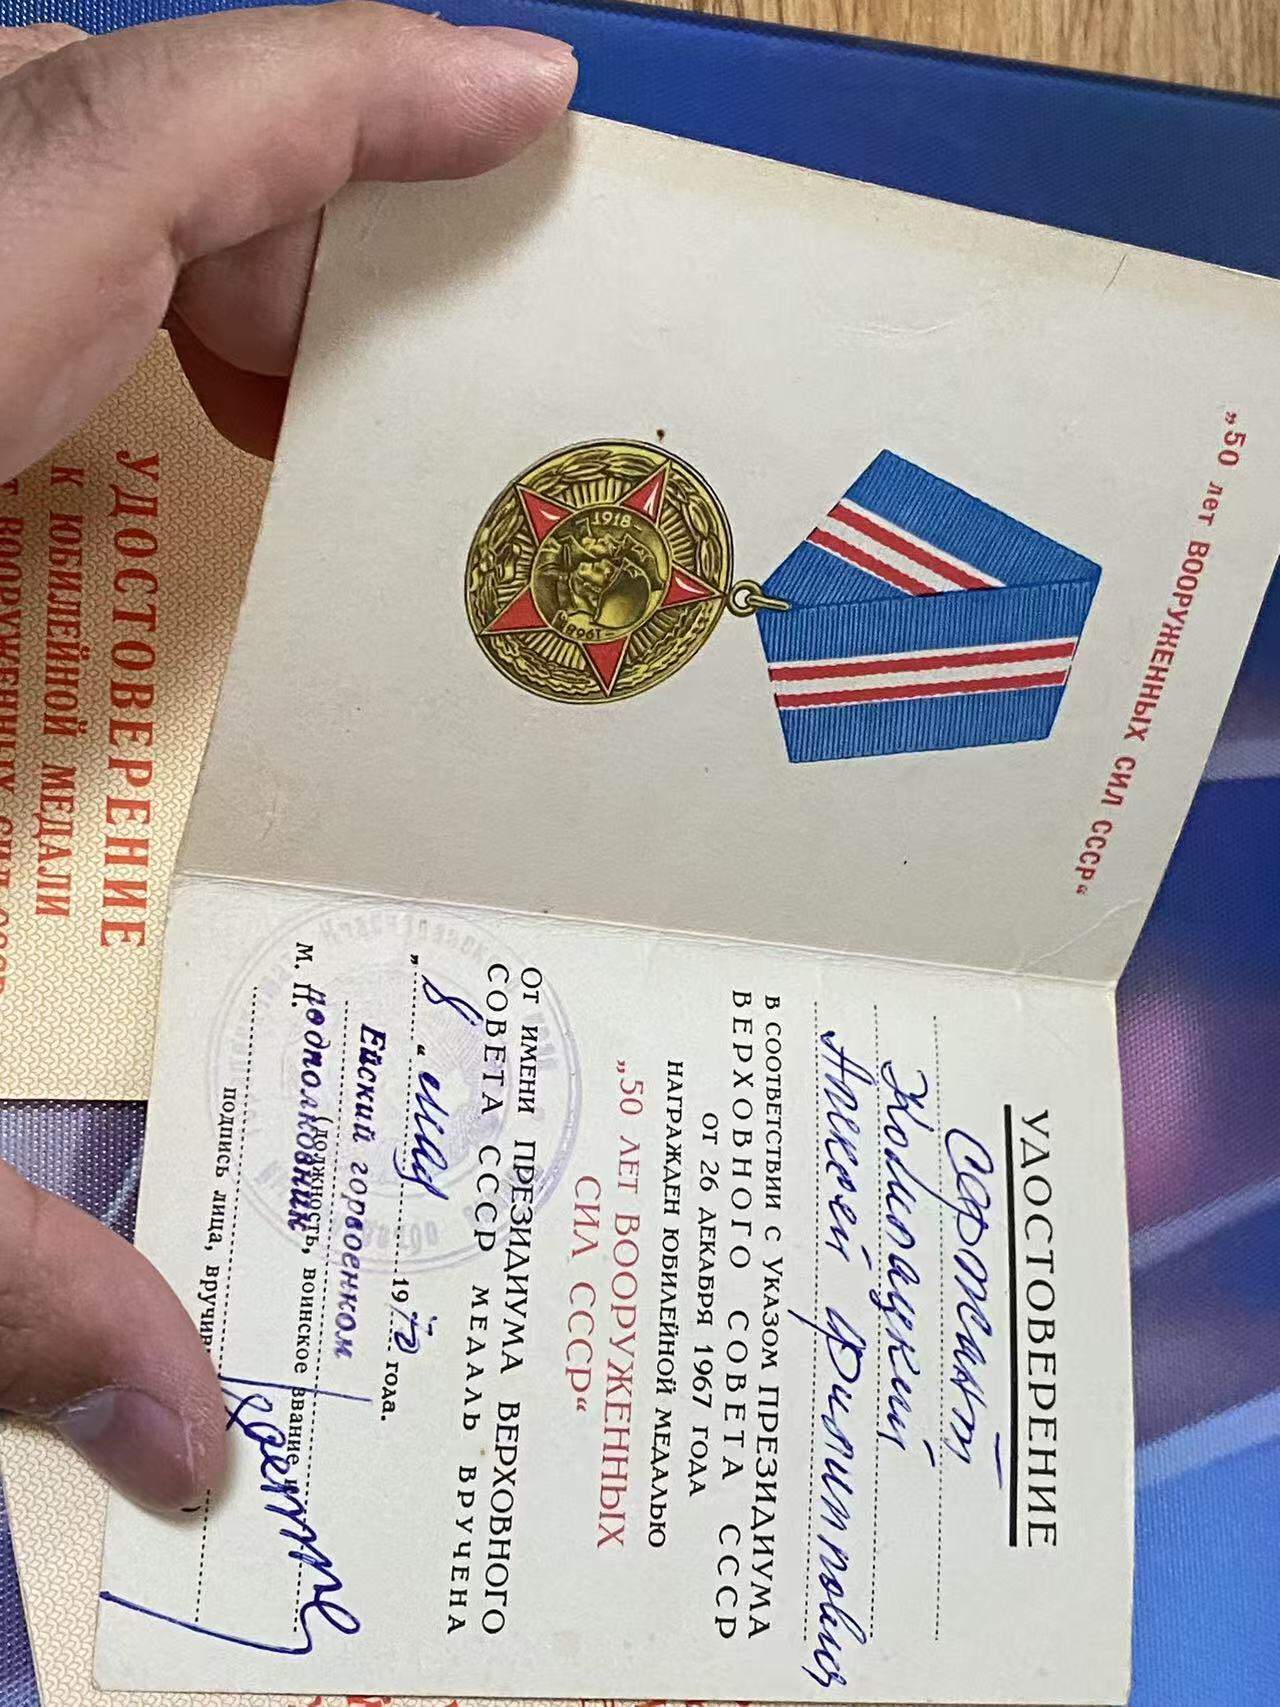 „50 лет ВООРУЖЕННЫХ СИЛ СССР“
1918
1968
УДОСТОВЕРЕНИЕ
Сержант
Алексей Филиппович
В СООТВЕТСТВИИ С УКАЗОМ ПРЕЗИДИУМА
ВЕРХОВНОГО СОВЕТА СССР
ОТ 26 ДЕКАБРЯ 1967 ГОДА
НАГРАЖДЕН ЮБИЛЕЙНОЙ МЕДАЛЬЮ
„50 ЛЕТ ВООРУЖЕННЫХ
СИЛ СССР“
ОТ ИМЕНИ ПРЕЗИДИУМА ВЕРХОВНОГО
СОВЕТА СССР МЕДАЛЬ ВРУЧЕНА
„8“ мая 1970 года.
Ейский горвоенком
(должность, воинское звание и
М. П. подполковник
подпись лица, вручив
УДОСТОВЕРЕНИЕ
К ЮБИЛЕЙНОЙ МЕДАЛИ
ВООРУЖЕННЫХ СИЛ СССР